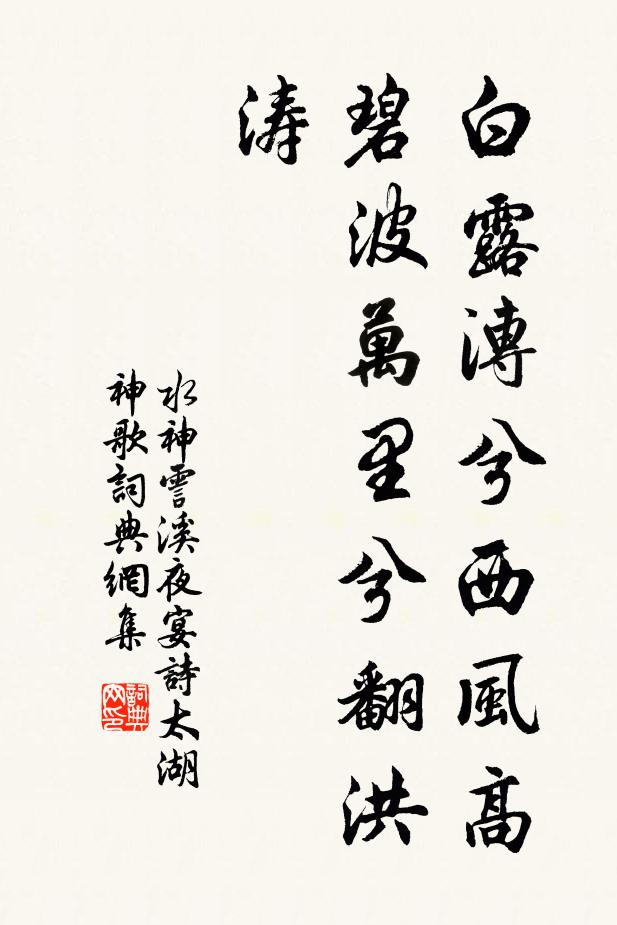 白露漙兮西風高
碧波萬里兮翻洪
涛
水神霅溪夜宴詩太湖
神歌詞典網集
詞典网印